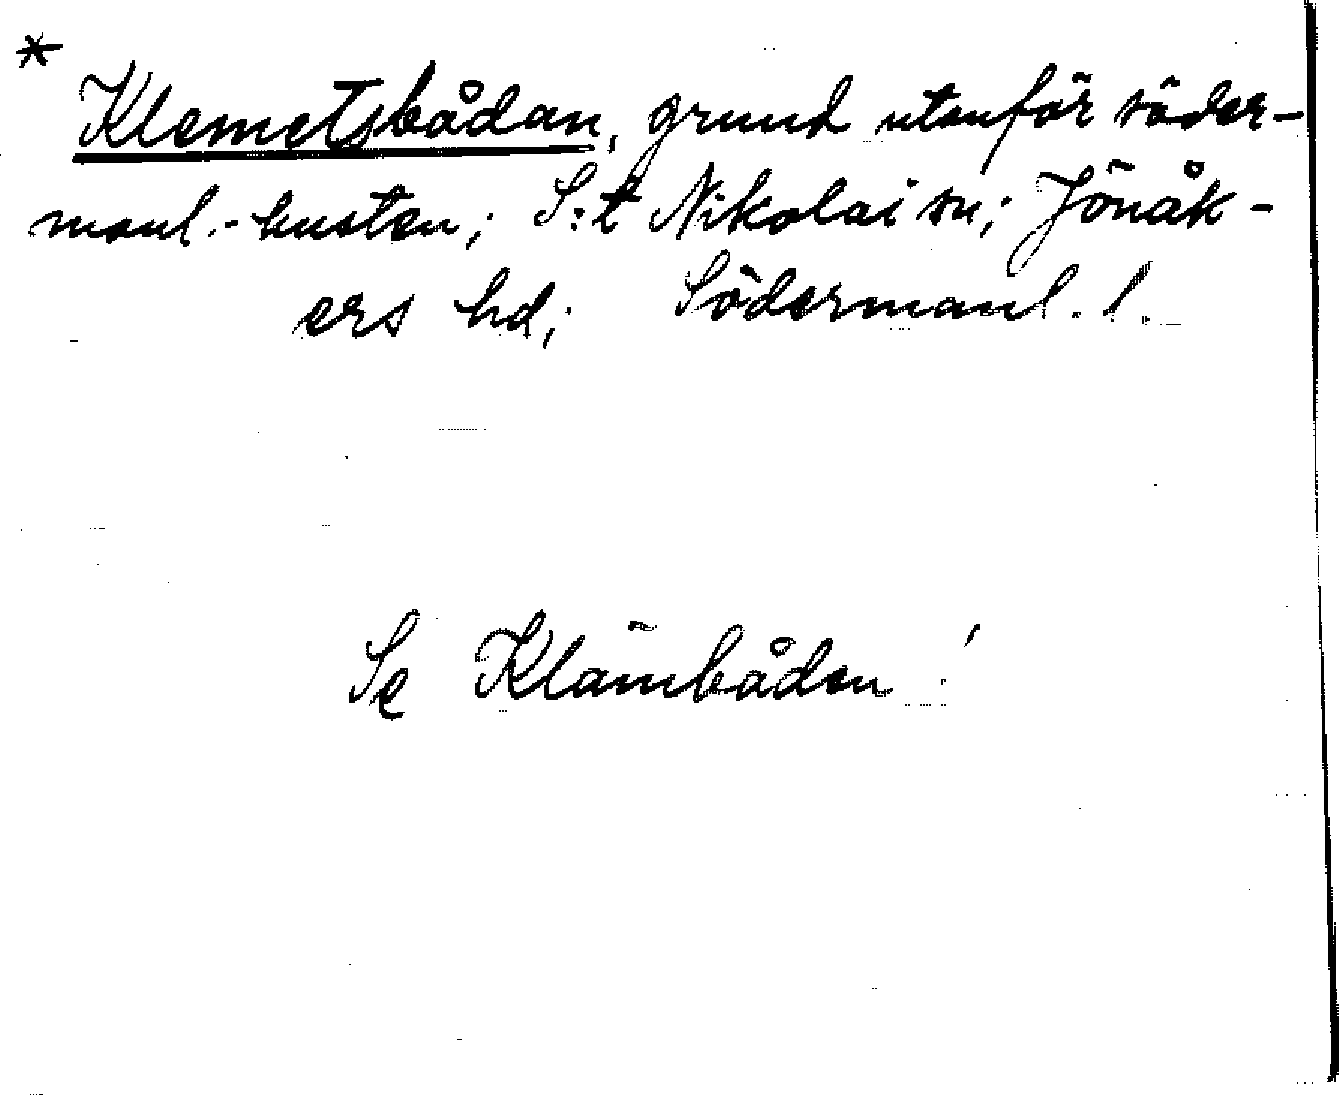 * Klemetsbådan, grund utanför söder-
manl.-kusten; S:t Nikolai sn; Jönåk-
ers hd; Södermanl. l.
Se Klämbåden!